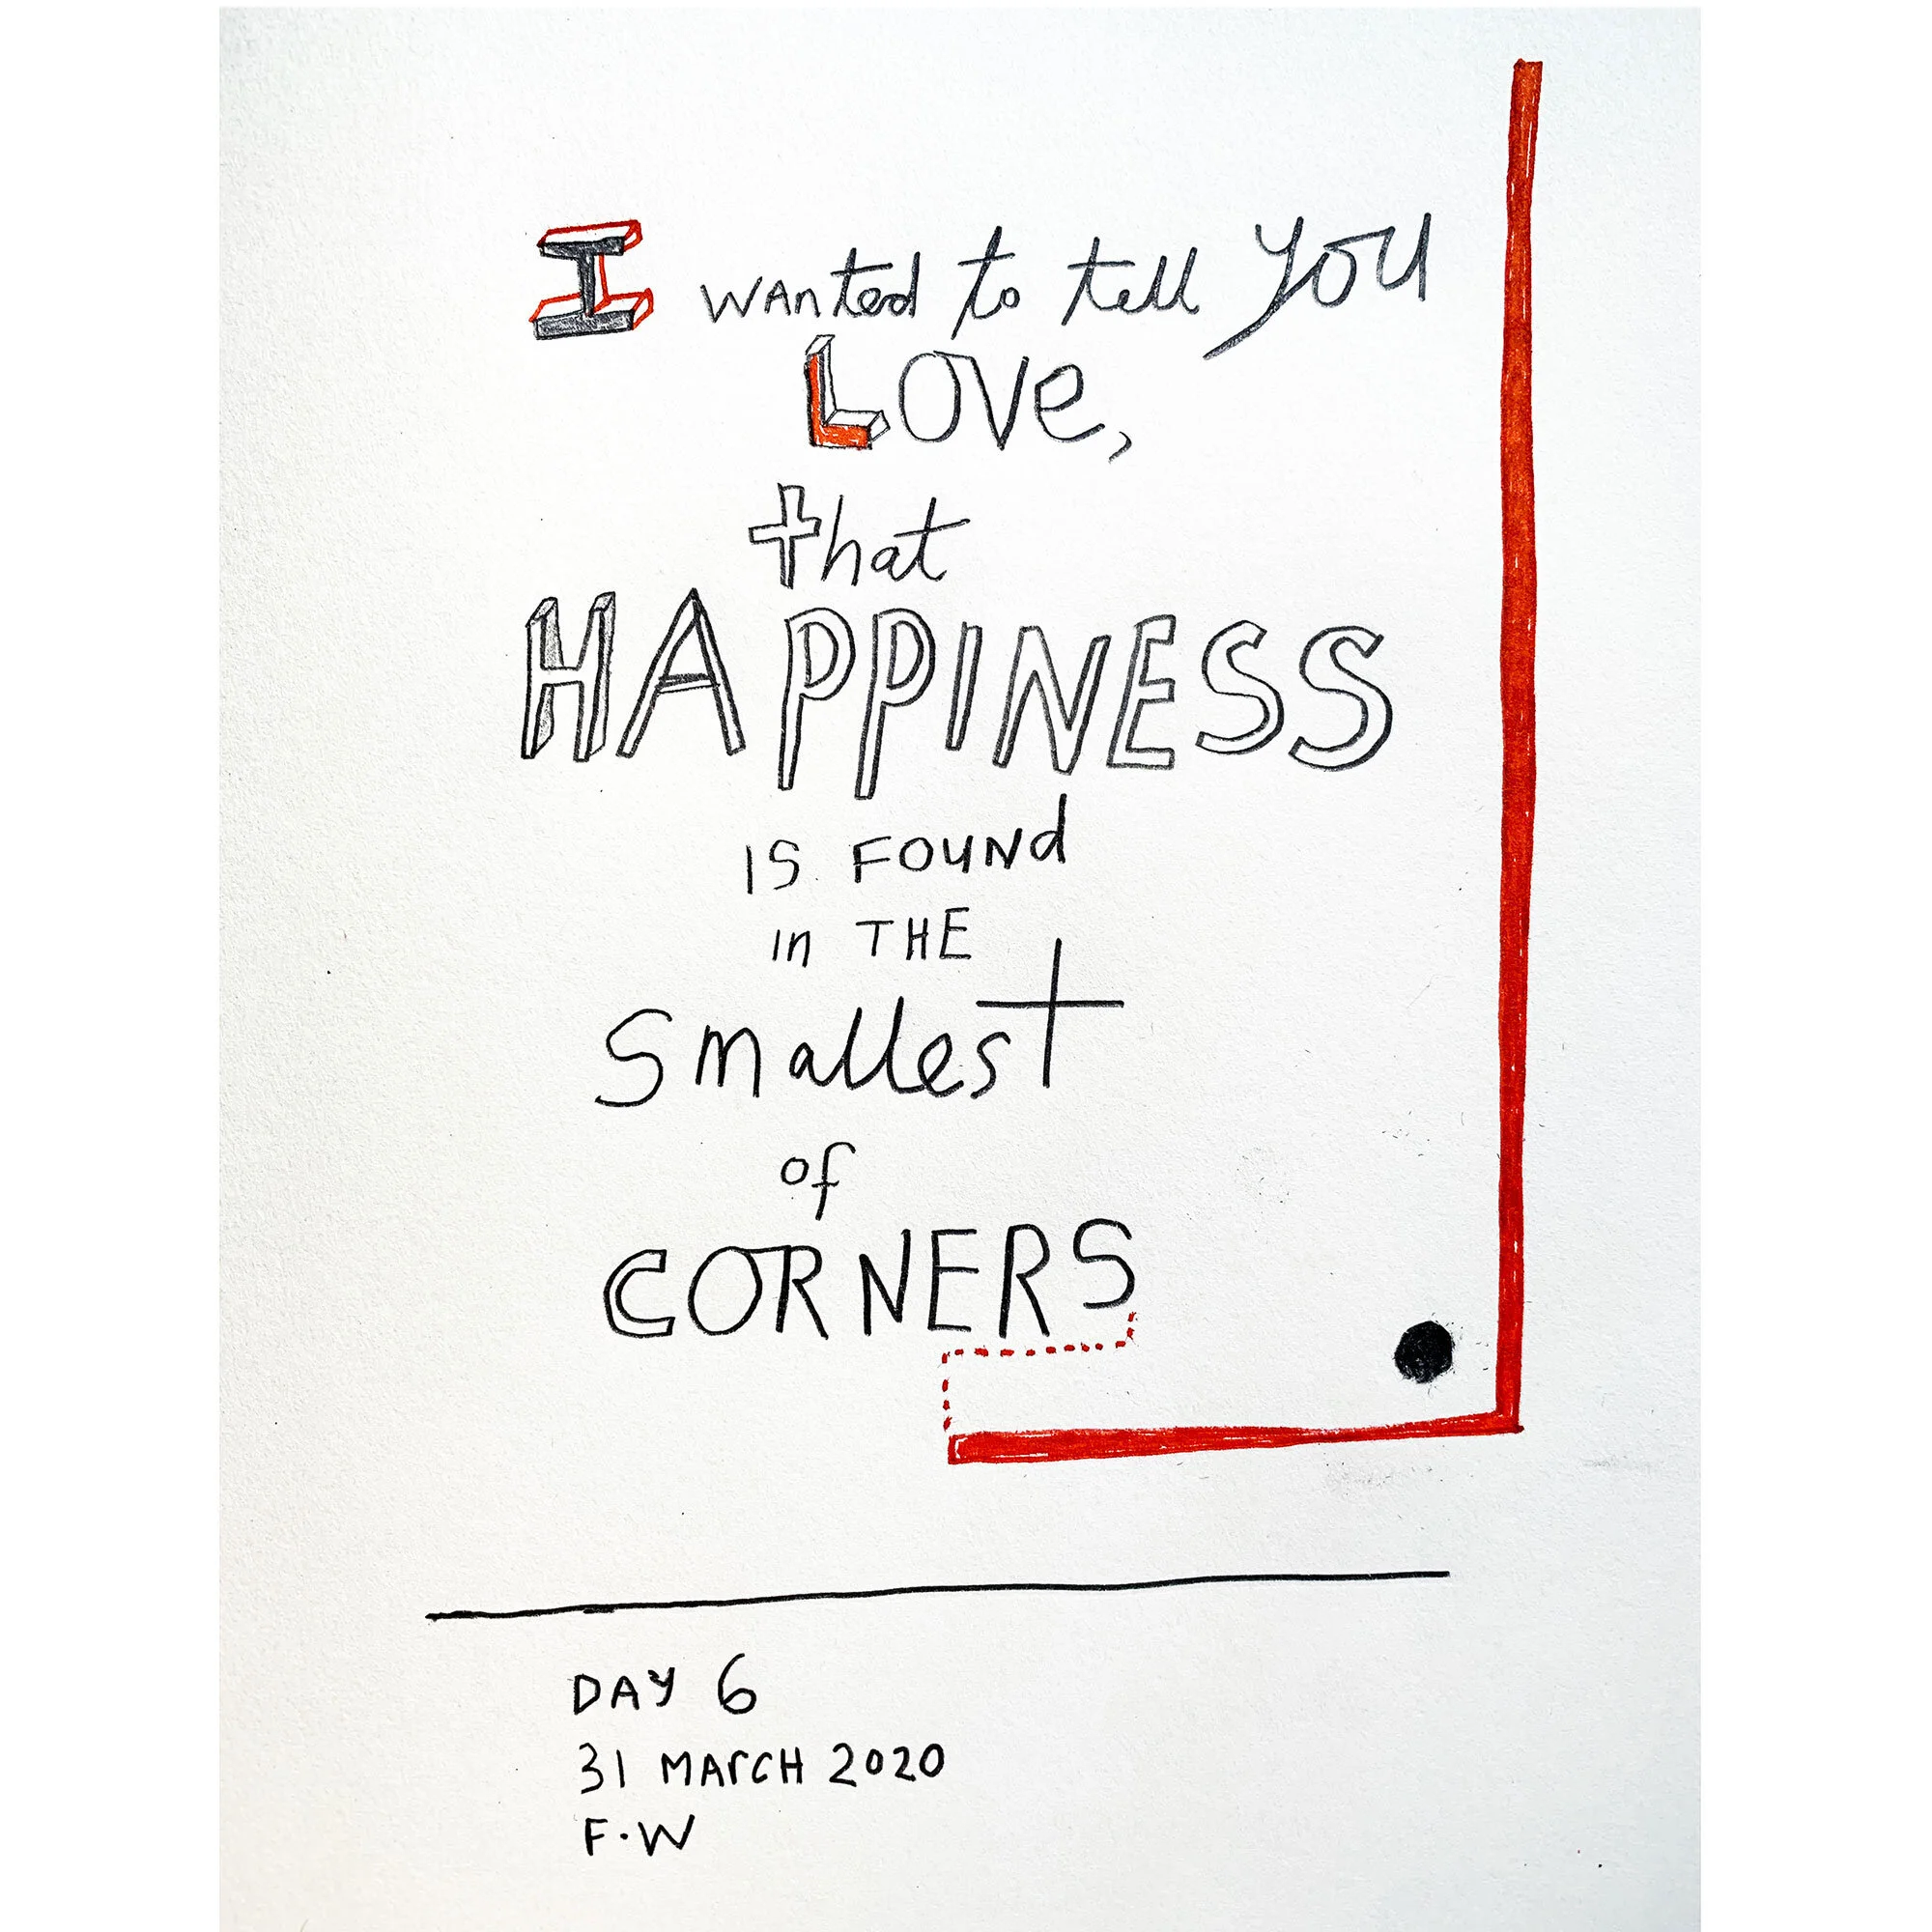 I wanted to tell you
Love,
that
HAPPINESS
IS FOUNd
in THE
Smallest
of
CORNERS
DAY 6
31 MARCH 2020
F.W